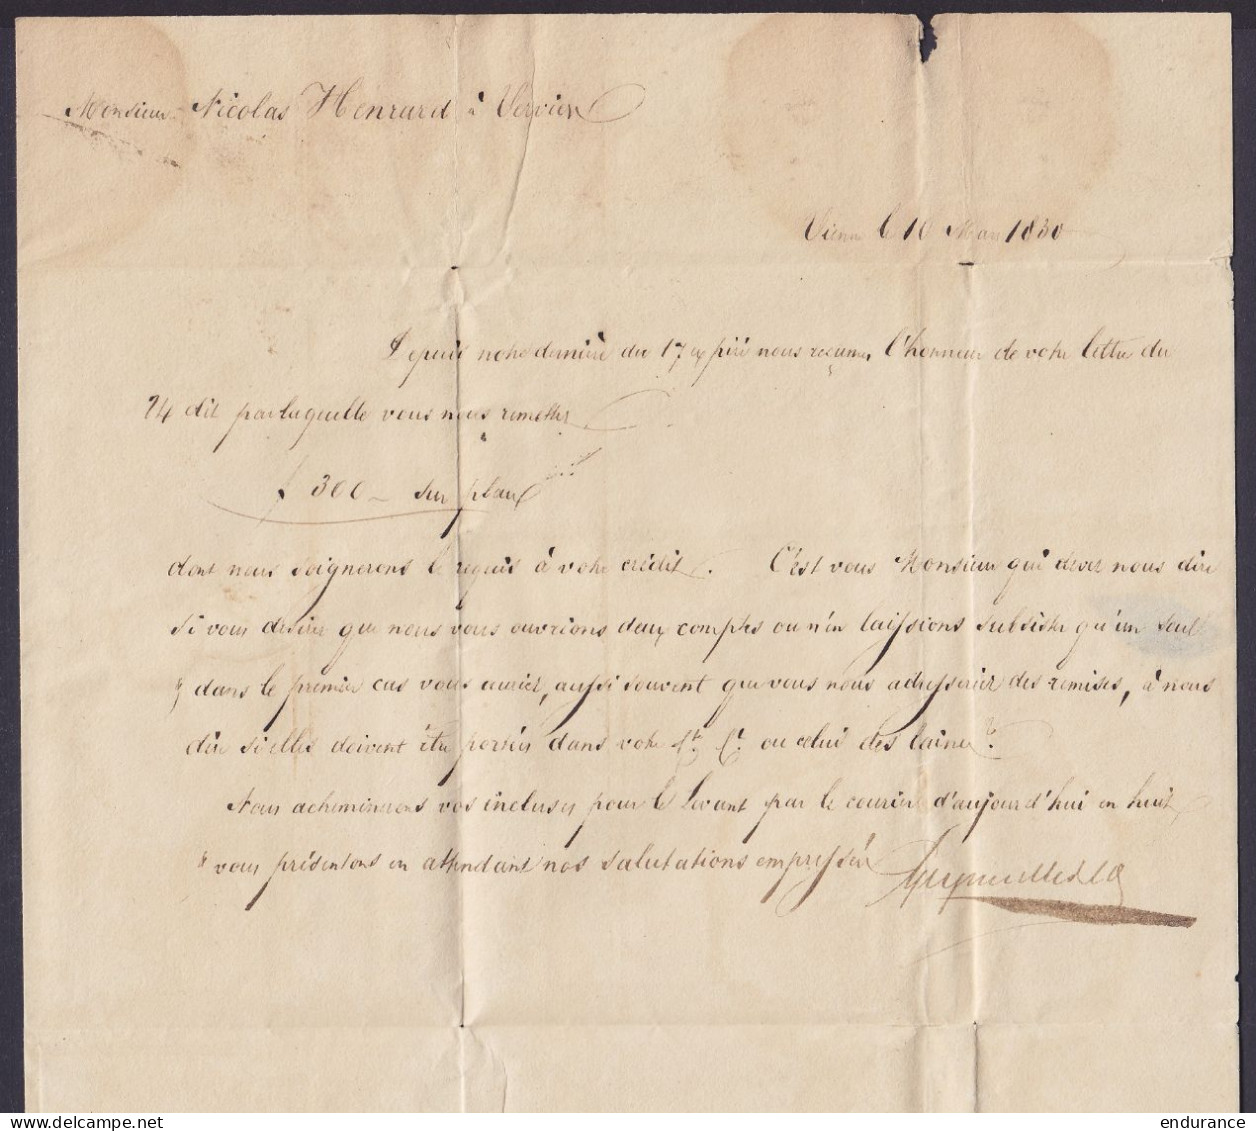 Monsieur Nicolas Henrard à Verviers
Vienne le 10 Mars 1830
Depuis notre dernière du 17 expiré nous reçumes l'honneur de votre lettre du
24 dit par laquelle vous nous remettez
f 300 – sur place
dont nous soignerons le requis à votre crédit. C'est vous Monsieur qui devez nous dire
si vous desirez que nous vous ouvrions deux comptes ou n'en laissions subsister qu'un seul
dans le premier cas vous auriez, aussi souvent que vous nous adresseriez des remises, à nous
dire si elles doivent être portées dans votre Ct. ou celui des laines.
Nous acheminerons vos incluses pour le Levant par le courier d'aujourd'hui en huit,
& vous présentons en attendant nos salutations empressées
endurance